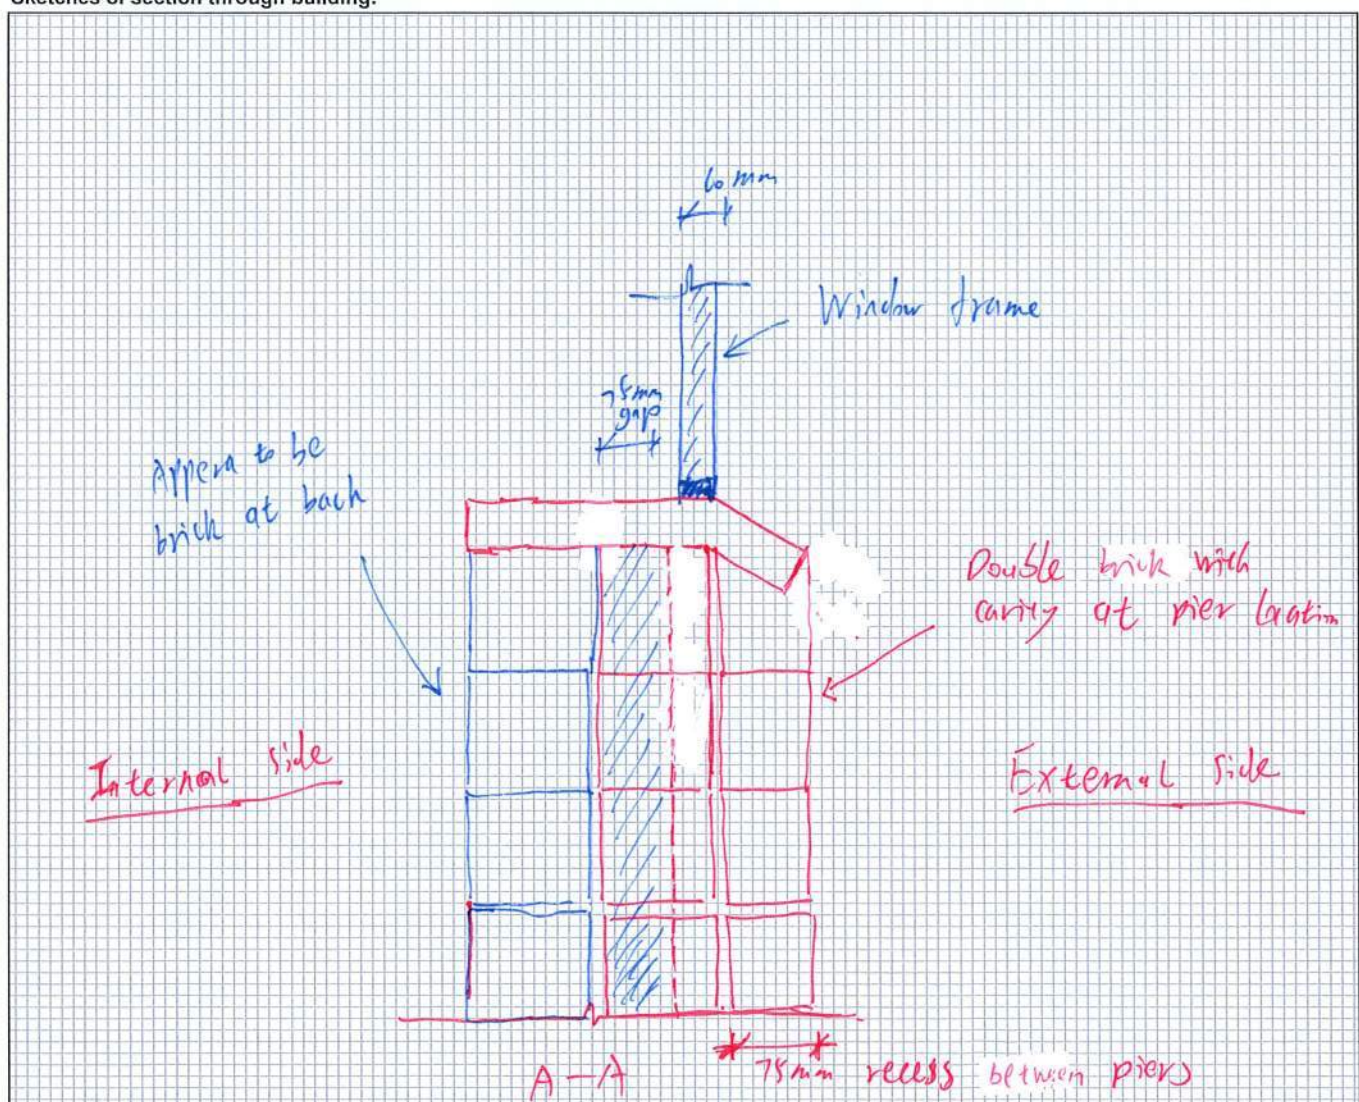 Sketches of section through building:
60 mm
Window frame
75mm
gap
Appera to be
brick at back
Double brick with
cavity at pier location
Internal side
External side
A-A
75mm recess between piers